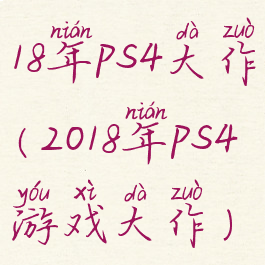 nián dà zuò
18年PS4大作
nián
(2018年PS4
yóu xì dà zuò
游戏大作)